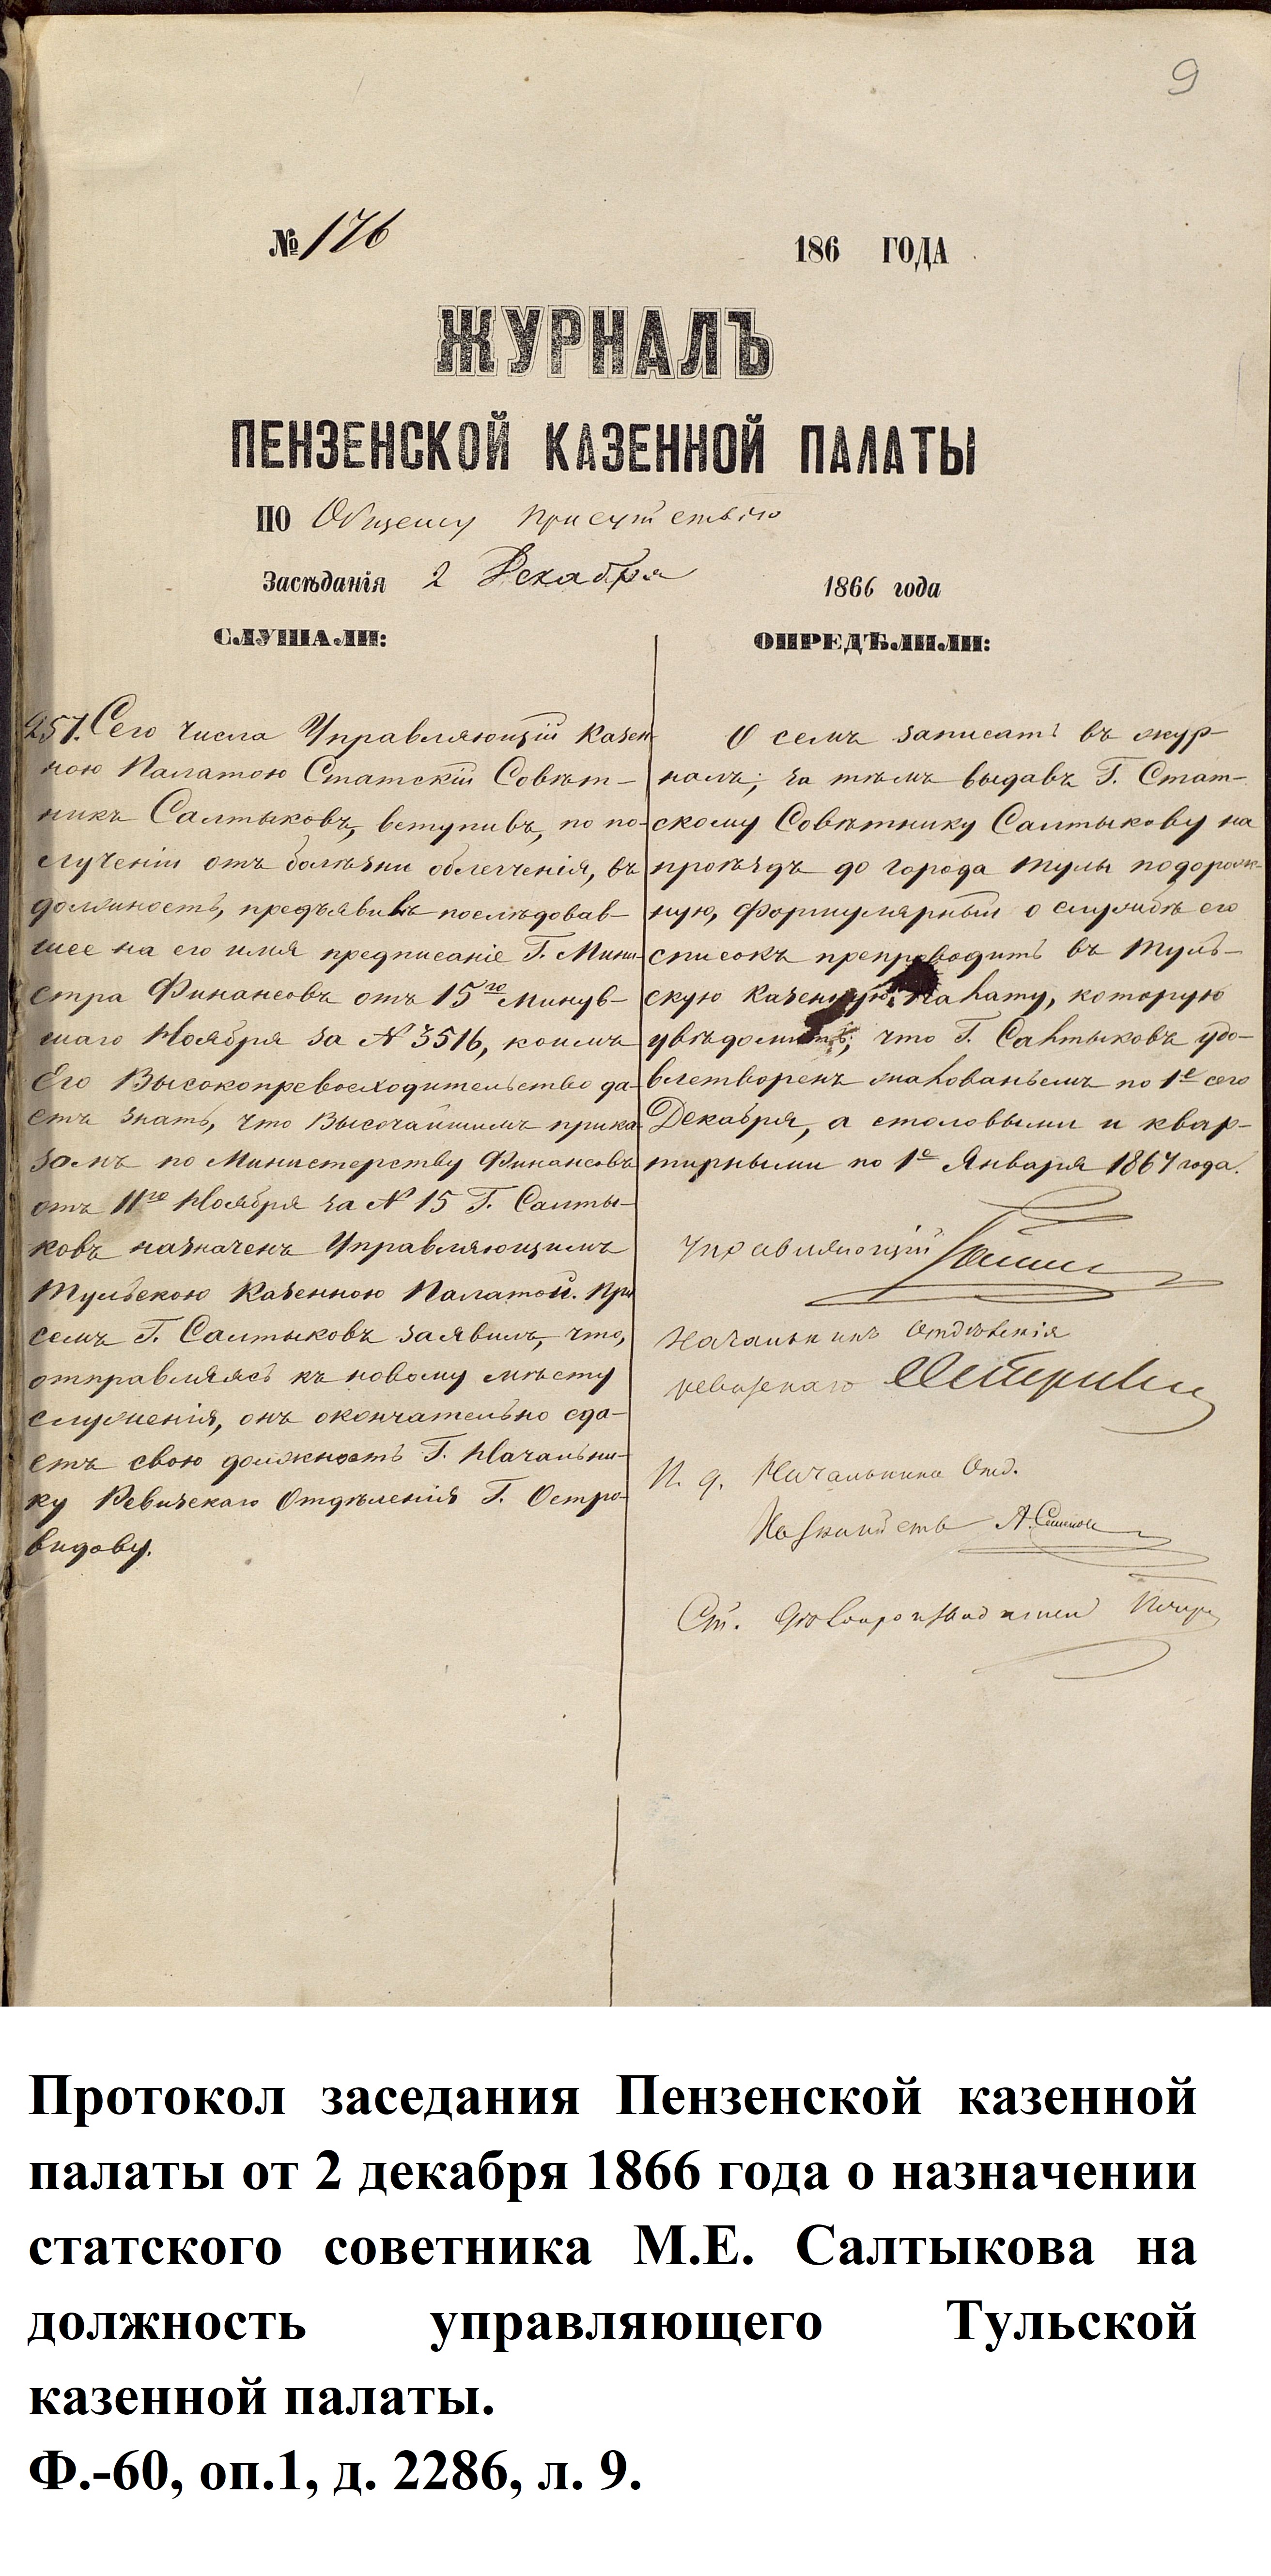 9
№ 176
186 ГОДА
ЖУРНАЛЪ
ПЕНЗЕНСКОЙ КАЗЕННОЙ ПАЛАТЫ
ПО Общему Присутствію
Засѣданія 2 Декабря 1866 года
СЛУШАЛИ:
257. Сего числа Управляющій Казен-
ною Палатою Статскій Совѣт-
никъ Салтыковъ, вступивъ, по по-
лученіи отъ болѣзни облегченія, въ
должность, предъявилъ послѣдовав-
шее на его имя предписаніе Г. Мини-
стра Финансовъ отъ 15го Минув-
шаго Ноября за № 3516, коимъ
Его Высокопревосходительство да-
етъ знать, что Высочайшимъ прика-
зомъ по Министерству Финансовъ
отъ 11го Ноября за № 15 Г. Салты-
ковъ назначенъ Управляющимъ
Тульскою Казенною Палатой. При
семъ Г. Салтыковъ заявилъ, что,
отправляясь къ новому мѣсту
служенія, онъ окончательно сда-
етъ свою должность Г. Начальни-
ку Ревизскаго Отдѣленія Г. Остро-
видову.
ОПРЕДѢЛИЛИ:
О семъ записать въ жур-
налъ; за тѣмъ выдавъ Г. Стат-
скому Совѣтнику Салтыкову на
проѣздъ до города Тулы подорож-
ную, формулярный о службѣ его
списокъ препроводить въ Туль-
скую Казенную Палату, которую
увѣдомить, что Г. Салтыковъ удо-
влетворенъ жалованьемъ по 1е сего
Декабря, а столовыми и квар-
тирными по 1е Января 1867 года.
Управляющій
Начальникъ Отдѣленія
ревизскаго
И. д. Начальника Отд.
Казначейств А. Семенов
Ст. Делопроизводитель
Протокол заседания Пензенской казенной
палаты от 2 декабря 1866 года о назначении
статского советника М.Е. Салтыкова на
должность управляющего Тульской
казенной палаты.
Ф.-60, оп.1, д. 2286, л. 9.